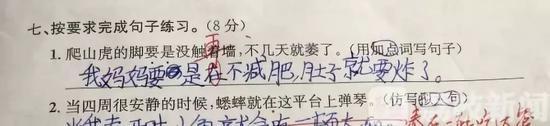 七、按要求完成句子练习。(8分)
1. 爬山虎的脚要是没触着墙,不几天就萎了。(用加点词写句子)
再
我妈妈要是在不减肥,肚子就要炸了。
2. 当四周很安静的时候,蟋蟀就在这平台上弹琴。(仿写拟人句)